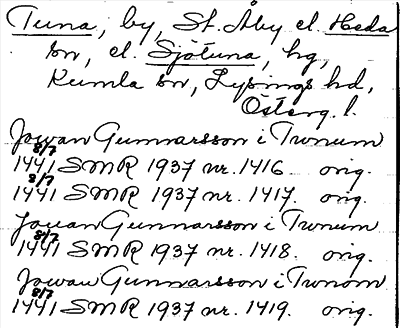 Tuna, by, St. Åby el. Heda
sn, el. Sjötuna, hg,
Kumla sn, Lysings hd,
Österg. l.
Jowan Gunnarsson i Twnum
8/7
1441 SMR 1937 nr. 1416 orig.
8/7
1441 SMR 1937 nr. 1417. orig.
Jouan Gunnarsson i Twnum
8/7
1441 SMR 1937 nr. 1418. orig.
Jowan Gunnarsson i Twnom
8/7
1441 SMR 1937 nr. 1419. orig.